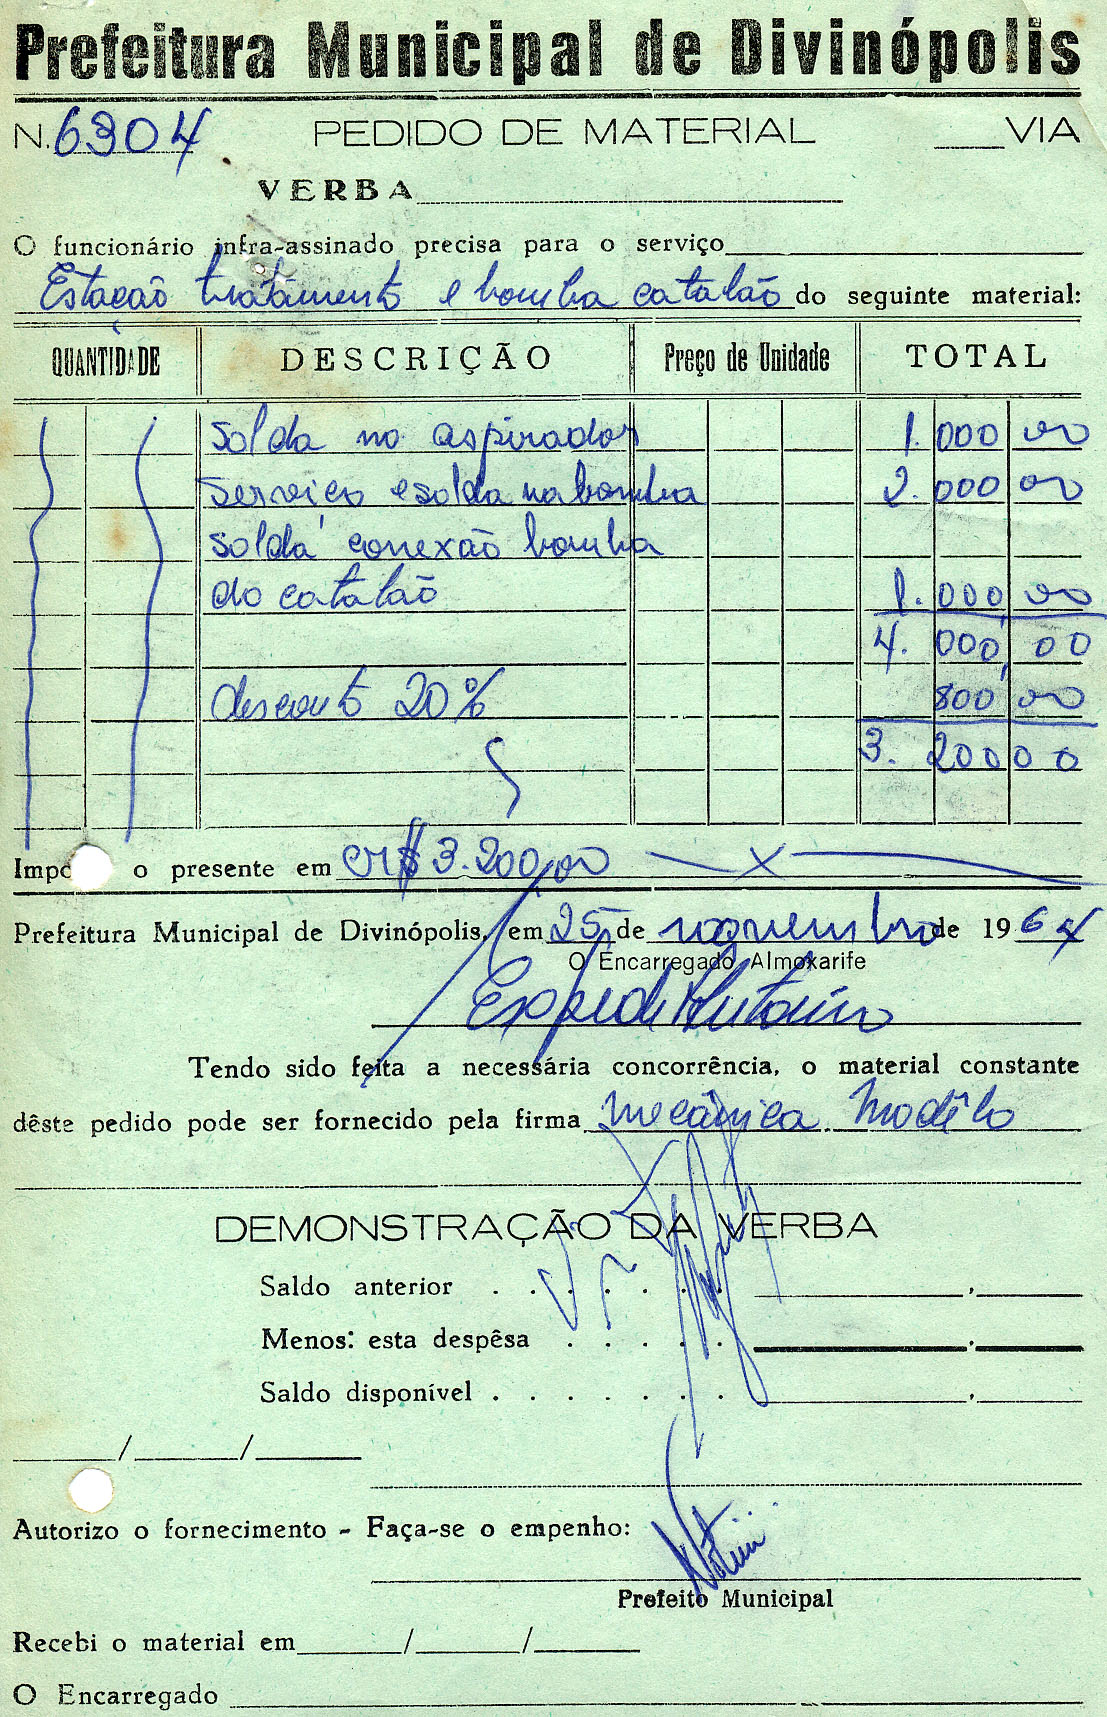 Prefeitura Municipal de Divinópolis
N. 6304 PEDIDO DE MATERIAL ____VIA
VERBA
O funcionário infra-assinado precisa para o serviço
Estação tratamento e bomba catalão do seguinte material:
QUANTIDADE DESCRIÇÃO Preço de Unidade TOTAL
solda no aspirador 1.000 00
serviço e solda na bomba 2.000 00
solda conexão bomba
do catalão 1.000,00
4.000,00
desconto 20% 800 00
3.200 00
Impo o presente em CR$ 3.200,00 x
Prefeitura Municipal de Divinópolis, em 25 de novembro de 1964
O Encarregado Almoxarife
Tendo sido feita a necessária concorrência, o material constante
dêste pedido pode ser fornecido pela firma Mecânica Modêlo
DEMONSTRAÇÃO DA VERBA
Saldo anterior . . . . . . . ,
Menos: esta despêsa . . . . . ,
Saldo disponível . . . . . . . ,
____/____/____
Autorizo o fornecimento - Faça-se o empenho:
Prefeito Municipal
Recebi o material em____/____/____
O Encarregado